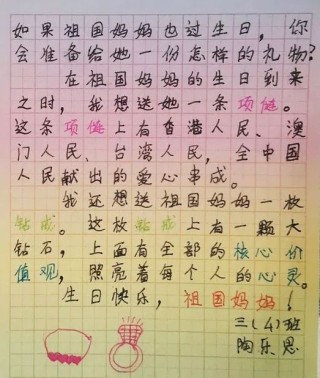 如果祖国妈妈也过生日，你
会准备给她一份怎样的礼物？
在祖国妈妈的生日到来
之时，我想送她一条项链。
这条项链上有香港人民、澳
门人民、台湾人民，全中国
人民献出的爱心串成。
我还想送祖国妈妈一枚
钻戒。这枚钻戒上有一颗大
钻石，上面有全部的核心价
值观，照亮着每个人的心灵。
生日快乐，祖国妈妈！
三(4)班
陶乐思